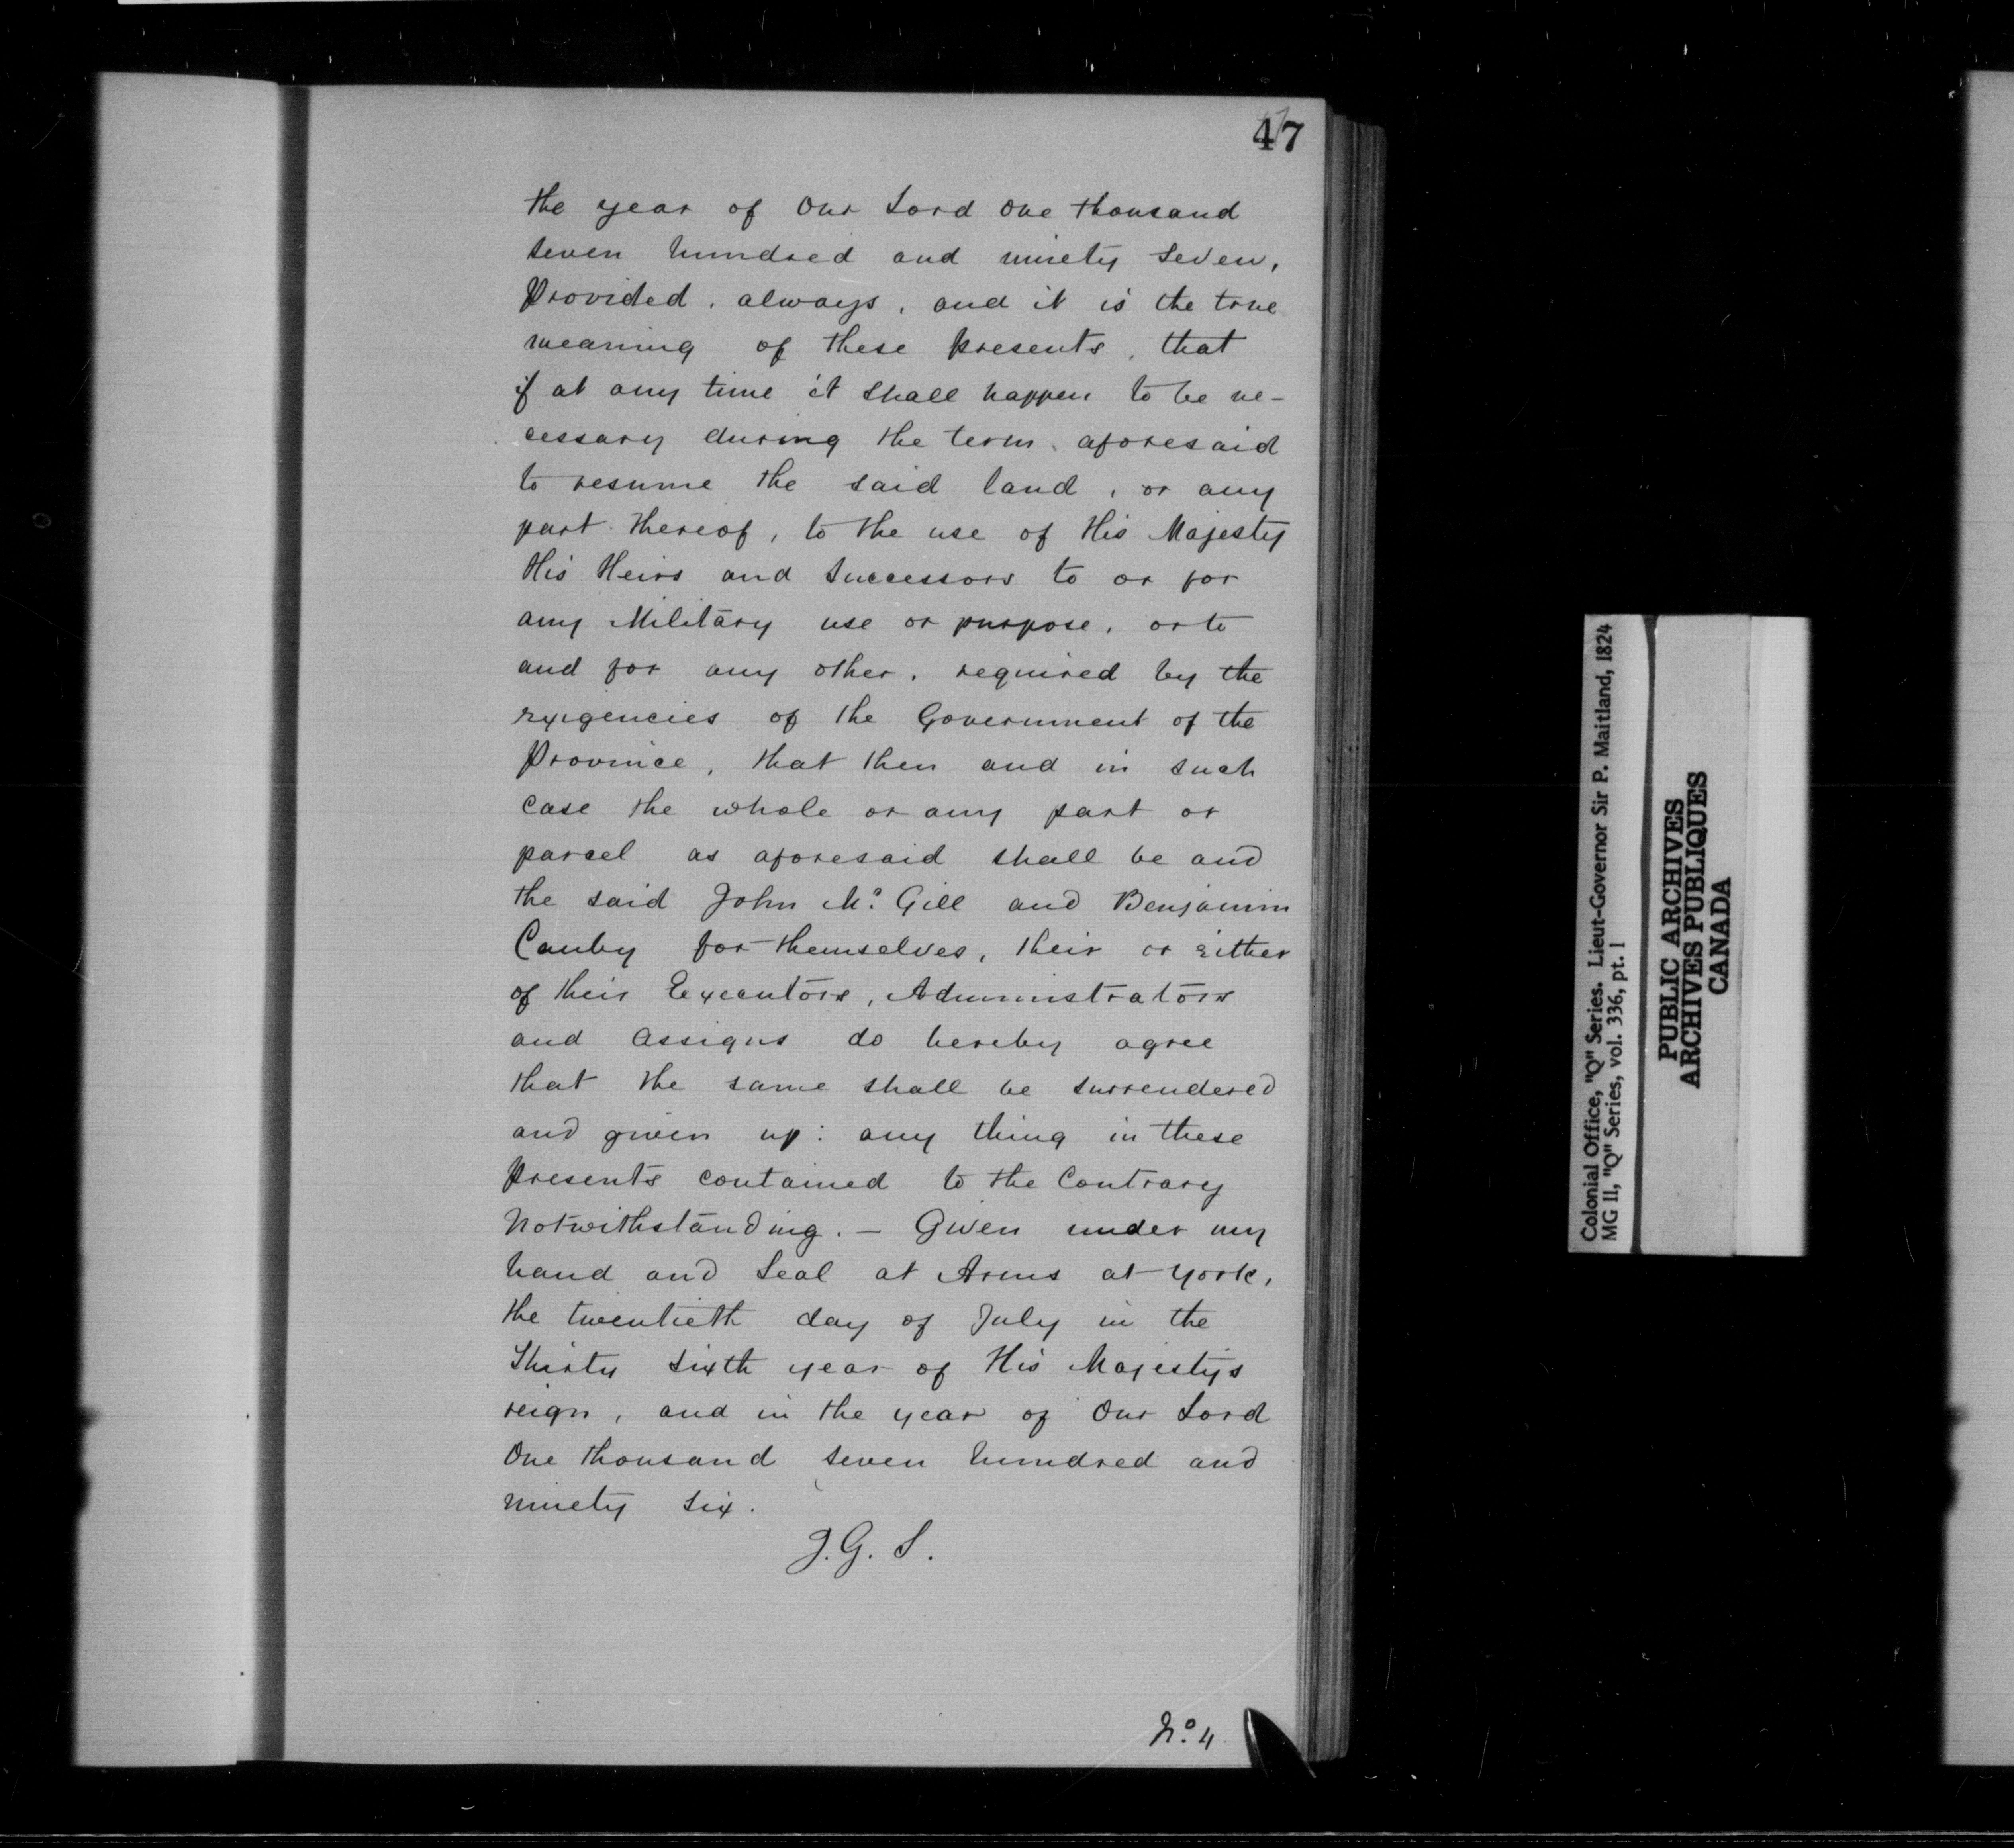 47
the year of Our Lord One thousand
seven hundred and ninety seven,
Provided, always, and it is the true
meaning of these presents, that
if at any time it shall happen to be ne-
cessary during the term aforesaid
to resume the said land, or any
part thereof, to the use of His Majesty
His Heirs and Successors to or for
any Military use or purpose, or to
and for any other, required by the
exigencies of the Government of the
Province, that then and in such
case the whole or any part or
parcel as aforesaid shall be and
the said John Mc. Gill and Benjamin
Canby for themselves, their or either
of their Executors, Administrators
and Assigns do hereby agree
that the same shall be surrendered
and given up: any thing in these
presents contained to the Contrary
Notwithstanding. — Given under my
hand and Seal at Arms at York,
the twentieth day of July in the
Thirty Sixth year of His Majesty's
reign, and in the year of Our Lord
One thousand seven hundred and
ninety six.
J. G. S.
No. 4
Colonial Office, "Q" Series. Lieut-Governor Sir P. Maitland, 1824
MG II, "Q" Series, vol. 336, pt. 1
PUBLIC ARCHIVES
ARCHIVES PUBLIQUES
CANADA